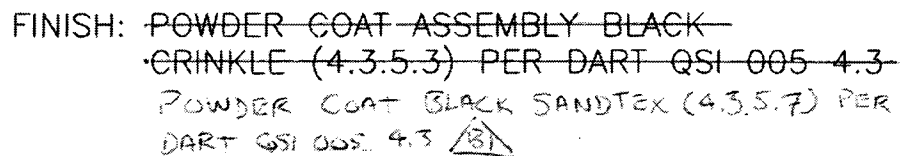 FINISH: POWDER COAT ASSEMBLY BLACK
CRINKLE (4.3.5.3) PER DART QSI 005 4.3
POWDER COAT BLACK SANDTEX (4.3.5.7) PER
DART QSI 005 4.3 B1